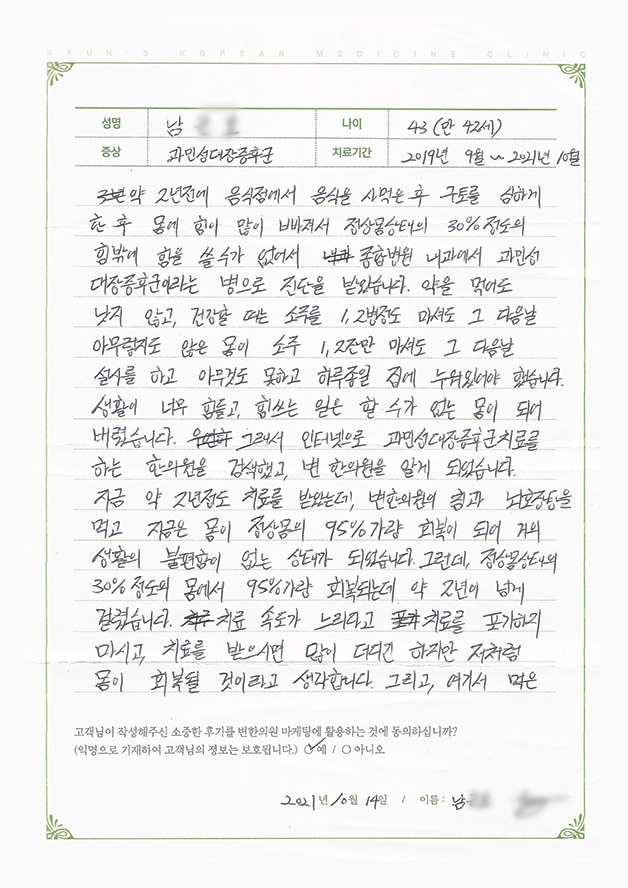 BYUN'S KOREAN MEDICINE CLINIC
성명 남 나이 43 (만 42세)
증상 과민성대장증후군 치료기간 2019년 9월 ~ 2021년 10월
약 2년전에 음식점에서 음식을 사먹은 후 구토를 심하게
한 후 몸에 힘이 많이 빠져서 정상몸상태의 30%정도의
힘밖에 힘을 쓸수가 없어서 종합병원 내과에서 과민성
대장증후군이라는 병으로 진단을 받았습니다. 약을 먹어도
낫지 않고, 건강할 때는 소주를 1,2병정도 마셔도 그 다음날
아무렇지도 않은 몸이 소주 1,2잔만 마셔도 그 다음날
설사를 하고 아무것도 못하고 하루종일 집에 누워있어야 했습니다.
생활이 너무 힘들고, 힘쓰는 일은 할 수가 없는 몸이 되어
버렸습니다. 그래서 인터넷으로 과민성대장증후군치료를
하는 한의원을 검색했고, 변 한의원을 알게 되었습니다.
지금 약 2년정도 치료를 받았는데, 변한의원의 환과 뇌호장탕을
먹고 지금은 몸이 정상몸의 95%가량 회복이 되어 거의
생활의 불편함이 없는 상태가 되었습니다. 그런데, 정상몸상태의
30%정도의 몸에서 95%가량 회복되는데 약 2년이 넘게
걸렸습니다. 치료 속도가 느리다고 치료를 포기하지
마시고, 치료를 받으시면 많이 더디긴 하지만 저처럼
몸이 회복될 것이라고 생각합니다. 그리고, 여기서 먹은
고객님이 작성해주신 소중한 후기를 변한의원 마케팅에 활용하는 것에 동의하십니까?
(익명으로 기재하여 고객님의 정보는 보호됩니다.) 예 / 아니오
2021년 10월 14일 / 이름 : 남